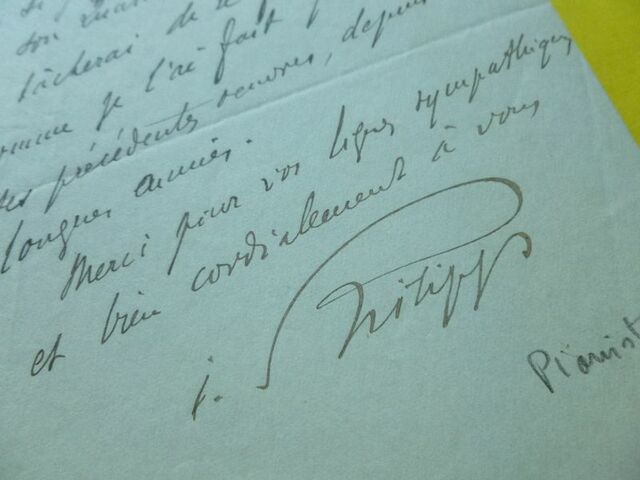 tâcherai de
comme je l'ai fait
précédentes œuvres, depuis
longues années.
Merci pour vos lignes sympathiques
et bien cordialement à vous
i. Philipp
Pianist